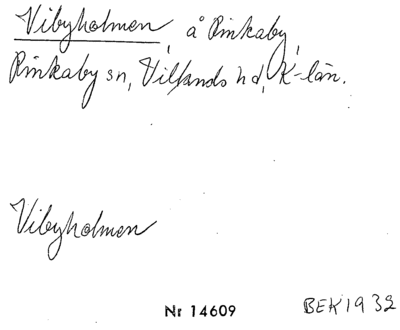 Vibyholmen, å Rinkaby,
Rinkaby sn, Villands hd, K-län.
Vibyholmen
Nr 14609
BEK 1932